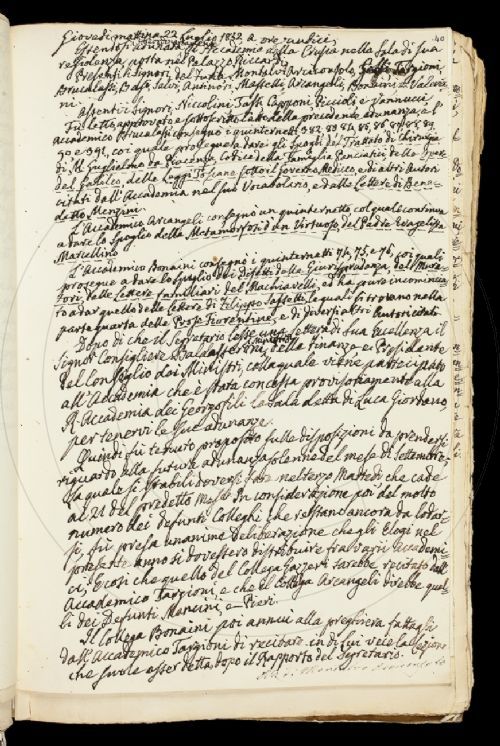 40
Giovedì mattina 22 Luglio 1852 a ore undici
si Accademia della Crusca nella Sala di sua
residenza, posta nel Palazzo Riccardi
Presenti i Signori del Furia, Montalvi Arciconsolo, Targioni,
Brucalassi, Salvi, Antinori, Masselli, Arcangeli, Bonaini e Valeria
ni.
Assenti i Signori, Niccolini, Capponi e Vannucci.
Fu letto, approvato e sottoscritto l'atto della precedente adunanza, e l'
Accademico Brucalassi consegnò i quinternetti 382. 83. 84. 85. 86. 87. 88. 89.
90 e 391, coi quale prosegue a dare gli Spogli del Trattato di Chirurgia
di M. Guglielmo da Piacenza, Codice della famiglia
del, delle Leggi Toscane sotto il governo Mediceo, e di altri Autori
citati dall'Accademia nel suo Vocabolario, e dalle Lettere di Bene-
detto Menzini.
L'Accademico Arcangeli consegnò un quinternetto col quale continua
a dare lo spoglio della Metamorfosi d'un Virtuoso del Padre Evagelista
Marcellino.
L'Accademico Bonaini consegnò i quinternetti 74, 75, e 76, coi quali
prosegue a dare lo spoglio dei Difetti della Giurisprudenza, del Mura-
tori, delle Lettere familiari del Machiavelli, ed ha pure incomincia
to a dar quello delle Lettere di Filippo Sassetti, le quali si trovano nella
parte quarta delle Prose Fiorentine, e di diversi altri Autori citati.
Dopo di che il Segretario lesse una Lettera di Sua Eccellenza il
Signor Consigliere Baldasseroni, Ministro della Finanze e Presidente
del Consiglio dei Ministri, colla quale viene partecipato
all'Accademia che è stata concessa provvisoriamente alla
R. Accademia dei Georgofili la Sala detta di Luca Giordano,
per tenervi le sue adunanze.
Quindi fu tenuto proposito sulle disposizioni da prendersi
riguardo alla futura adunanza solenne del mese di Settembre,
la quale si stabilì doversi fare nel terzo Martedì che cade
al 21 del predetto Mese. In considerazione poi del molto
numero dei defunti Colleghi che restano ancora da lodar-
si, fu presa unanime deliberazione che gli Elogi nel
presente anno si dovessero distribuire fra varii Accademi-
ci, e così che quello del Collega Gazzeri sarebbe recitato dall'
Accademico Targioni e che il Collega Arcangeli direbbe quel-
li dei Defunti Mancini, e Pieri.
Il Collega Bonaini poi annuì alla preghiera fattagli
dall'Accademico Targioni di recitare in di lui vece la Lezione
che suole esser detta, dopo il Rapporto del Segretario.